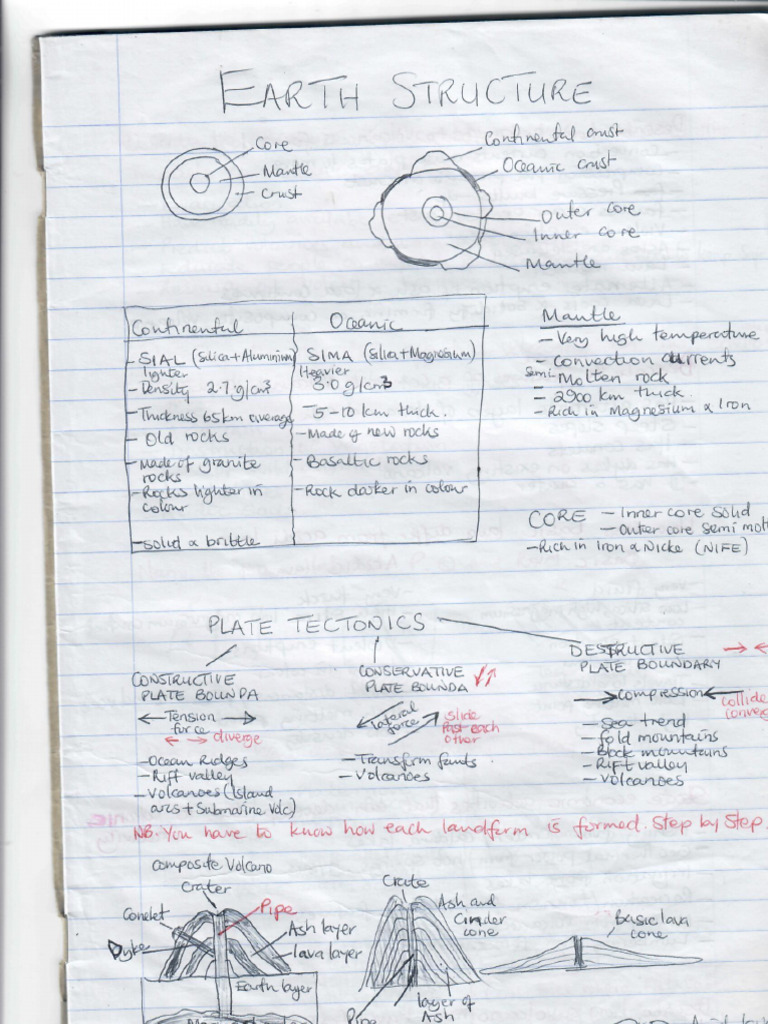 EARTH STRUCTURE
Core
Mantle
Crust
Continental crust
Oceanic crust
Outer core
Inner core
Mantle
Continental
- SIAL (Silica + Aluminium)
lighter
- Density 2.7 g/cm3
- Thickness 65 km average
- Old rocks
- Made of granite
rocks
- Rocks lighter in
colour
- Solid & brittle
Oceanic
SIMA (Silia + Magnesium)
Heavier
3.0 g/cm3
5-10 km thick.
- Made of new rocks
- Basaltic rocks
- Rock darker in colour
Mantle
- Very high temperature
- Convection currents
- Semi-Molten rock
- 2900 km thick.
- Rich in Magnesium & Iron
CORE - Inner core solid
- Outer core semi molt
- Rich in Iron & Nicke (NIFE)
PLATE TECTONICS
CONSTRUCTIVE
PLATE BOUNDA
Tension
force
diverge
- Ocean Ridges
- Rift valley
- Volcanoes (Island
arcs + Submarine Volc)
CONSERVATIVE
PLATE BOUNDA
lateral
force
slide
Past each
other
- Transform faults.
- Volcanoes
DESTRUCTIVE
PLATE BOUNDARY
compression
collide
converg
- Sea trend
- fold mountains
- Block mountains
- Rift valley
- Volcanoes
NB. You have to know how each landform is formed. Step by Step.
Composite Volcano
Crater
Pipe
Conelet
Dyke
Ash layer
lava layer
Earth layer
Crate
Ash and
Cinder
cone
layer of
Ash
Pipe
Basic lava
cone